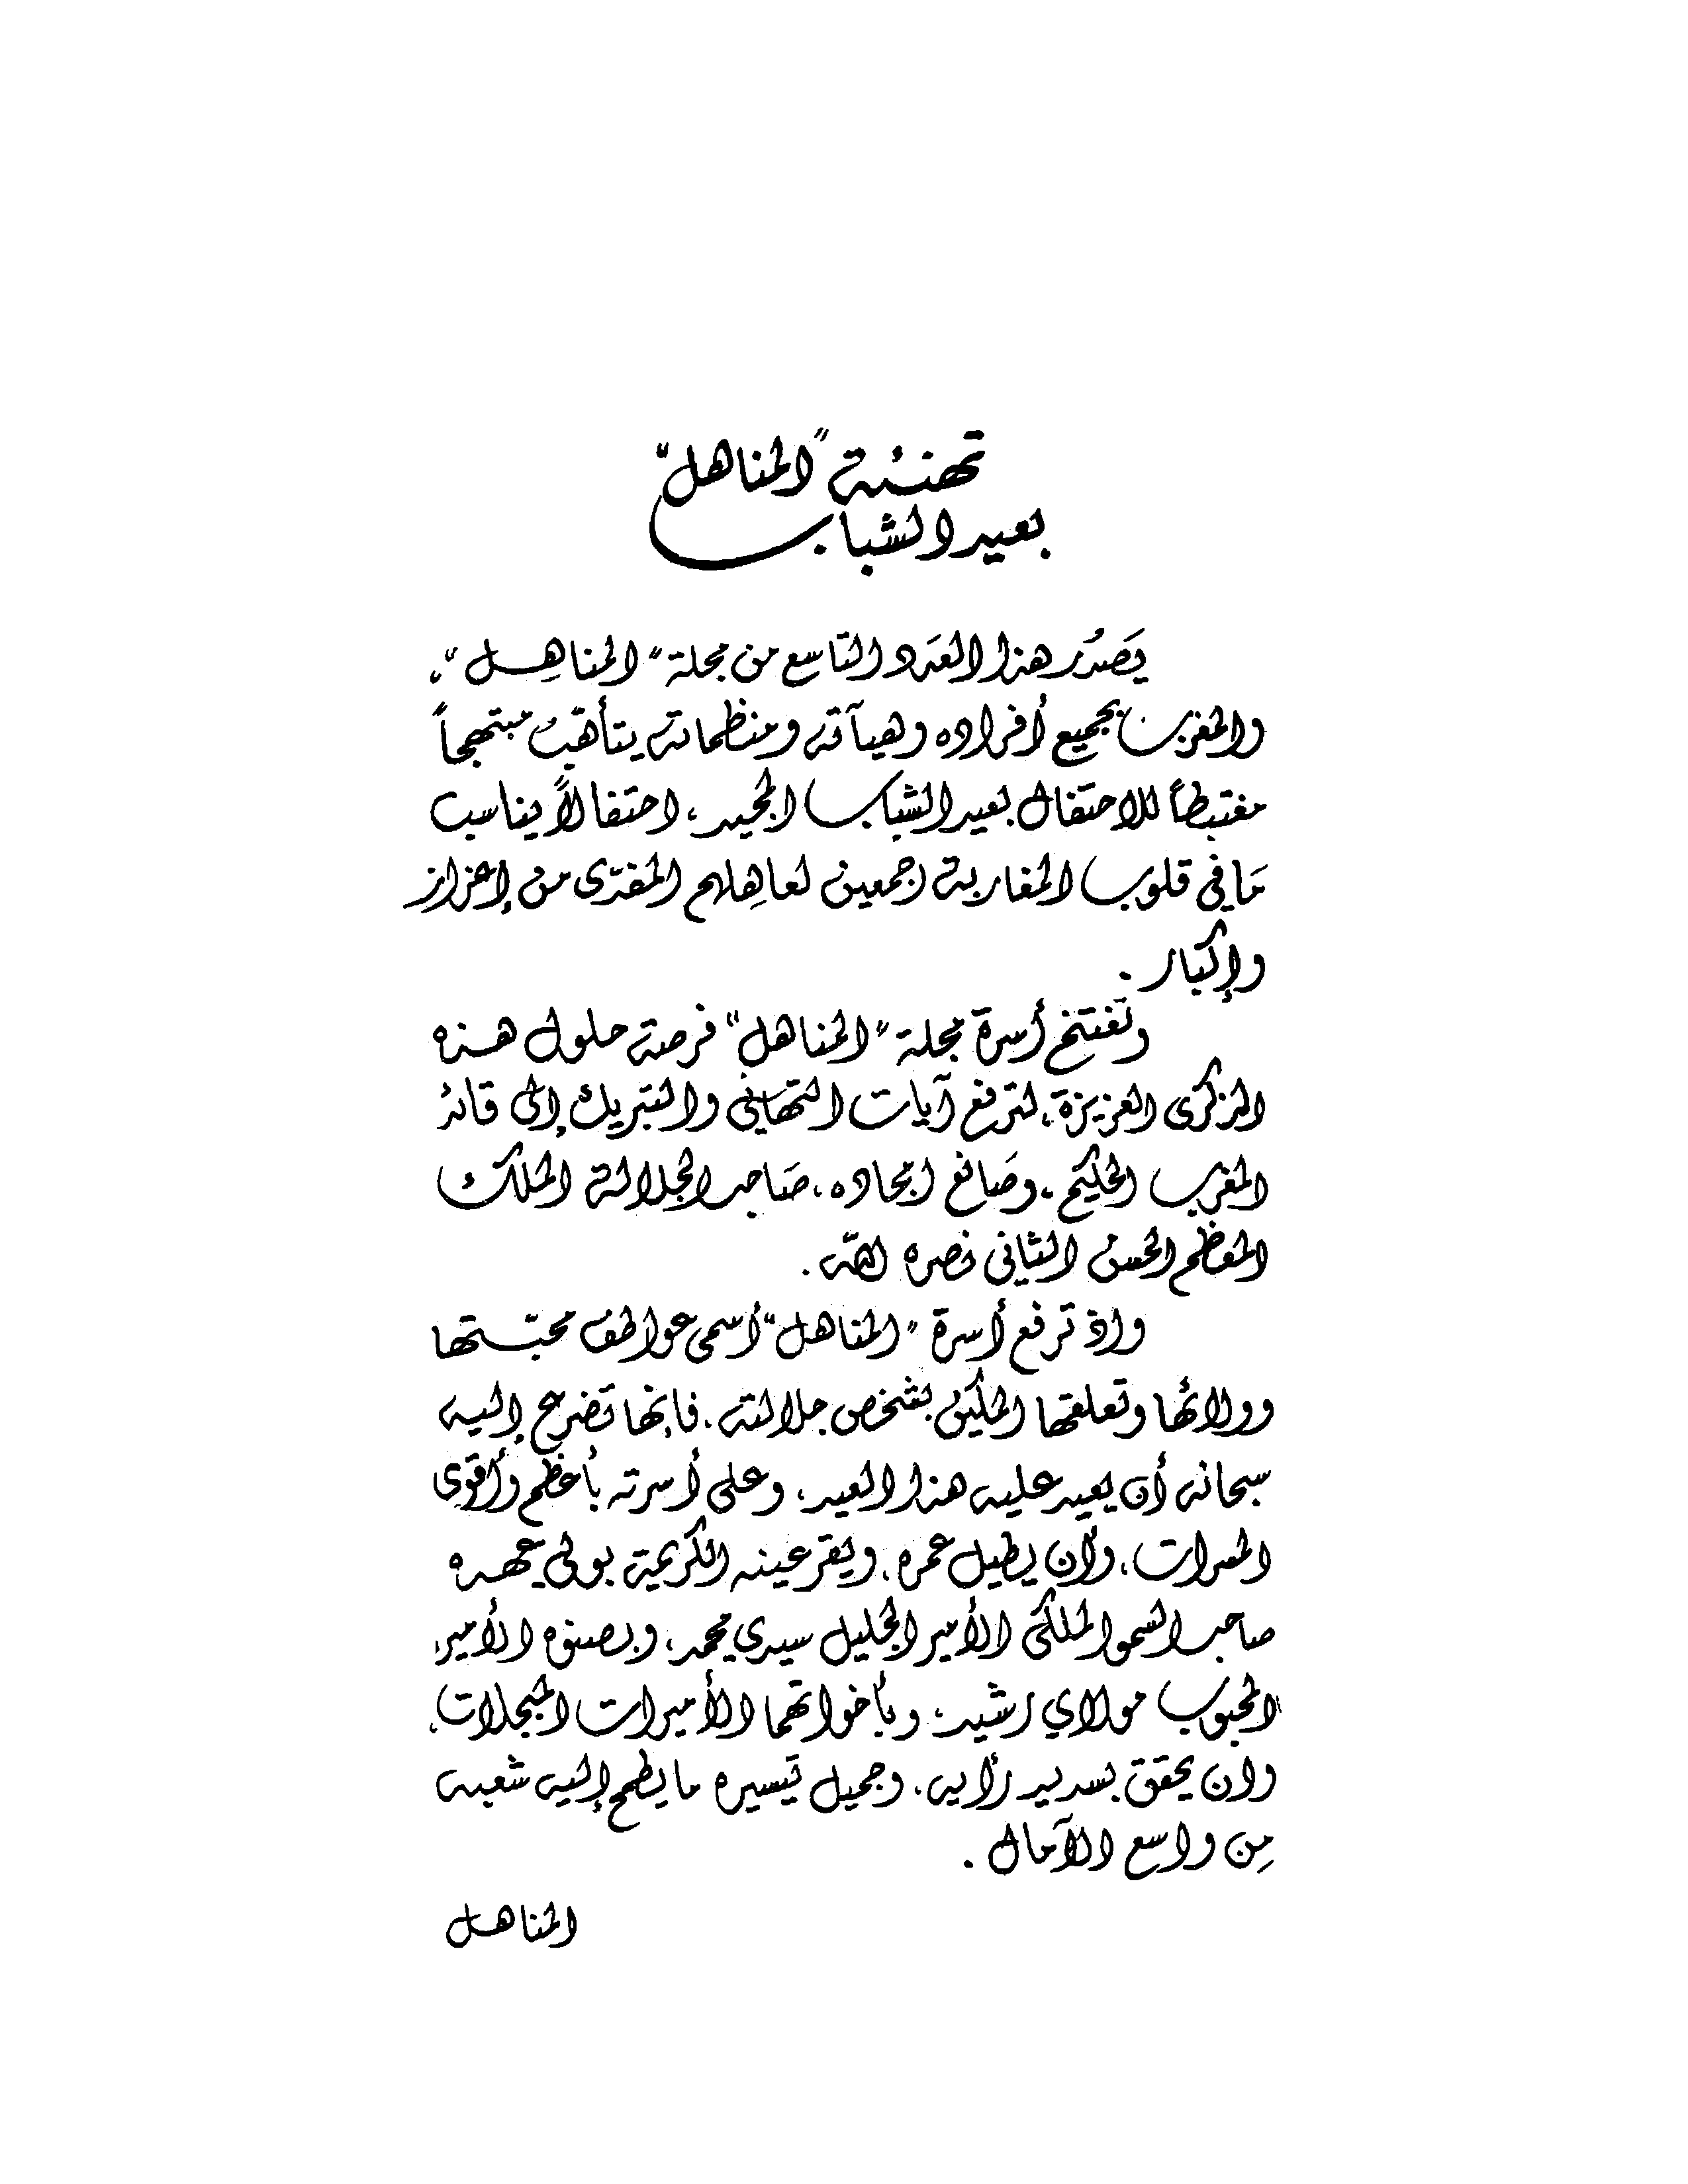 تهنئة "المناهل"
بعيد الشباب
يَصدُر هذا العَدد التاسع من مجلة "المناهِل"،
والمغرب بجميع أفراده وهيآته ومنظماته يتأهب مبتهجاً
مغتبطاً للاحتفال بعيد الشباب المجيد، احتفالاً يناسب
مَا في قلوب المغاربة اجمعين لعاهِلهم المفدّى من إعزاز
وإكبار.
وتغتنم أسرة مجلة "المناهل" فرصة حلول هذه
الذكرى العزيزة، لترفع آيات التهاني والتبريك إلى قائد
المغرب الحكيم، وصَانع امجاده، صَاحب الجلالة الملك
المعظم الحسن الثاني نصره الله.
واذ ترفع أسرة "المناهل" أسمى عواطف محبّتها
وولائها وتعلقها المكين بشخص جلالته، فإنها تضرع إليه
سبحانه أن يعيد عليه هذا العيد، وعلى أسرته بأعظم وأقوى
المسرات، وأن يطيل عمره، ويقر عينه الكريمة بولي عهده
صاحب السمو الملكي الأمير الجليل سيدي محمد، وبصنوه الأمير
المحبوب مولاي رشيد، وبأخواتهما الأميرات المبجلات،
وان يحقق بسديد رأيه، وجميل تيسيره ما يطمح إليه شعبه
مِن واسع الآمال.
المناهل